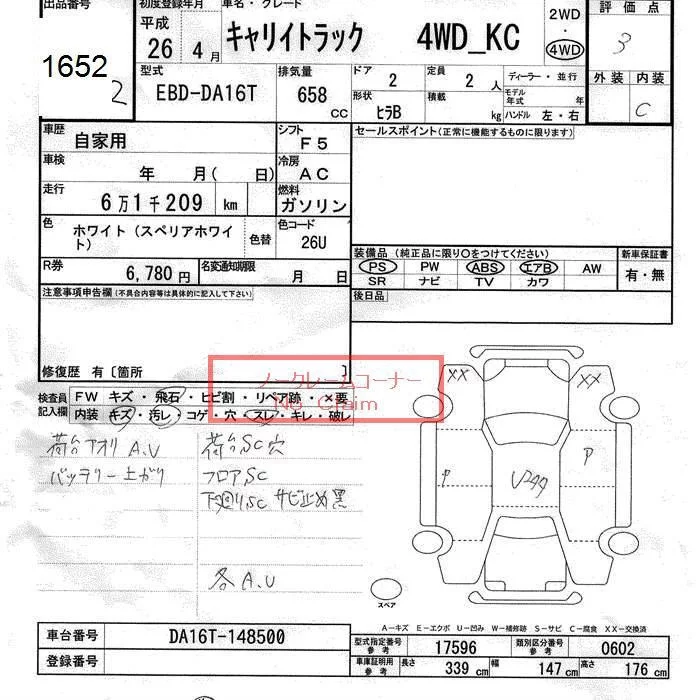 出品番号
1652
2
初度登録年月
平成
26 4月
車名・ グレード
キャリイトラック 4WD_KC
2WD
・
4WD
評価点
3
外装 内装
C
型式
EBD-DA16T
排気量
658
cc
ドア
2
定員
2 人
ディーラー・並行
モデル
年式 年
形状
ヒラB
積載
kg
ハンドル 左・右
車歴
自家用
シフト
F5
セールスポイント(正常に機能するものに限ります)
車検
年 月( 日)
冷房
AC
走行
6万1千209 km
燃料
ガソリン
色
ホワイト (スペリアホワイト)
色替
色コード
26U
R券
6,780 円
名変通知期限
月 日
装備品 (純正品に限り○をつけてください)
新車保証書
PS PW ABS エアB AW
有・無
SR ナビ TV カワ
後日品
注意事項申告欄(不具合内容等は具体的に記入して下さい)
修復歴 有〔箇所 〕
ノークレームコーナー
No Claim
検査員
記入欄
FW キズ・飛石・ヒビ割・リペア跡・×要
内装 キズ・汚レ・コゲ・穴・スレ・キレ・破レ
荷台アオリ A.U
荷台SC穴
バッテリー上がり
フロアSC
下廻りSC サビ止め黒
各 A.U
XX
XX
P
P
U244
スペア
A-キズ E-エクボ U-凹み W-補修跡 S-サビ C-腐食 XX-交換済
車台番号
DA16T-148500
登録番号
型式指定番号
参考
17596
類別区分番号
参考
0602
車庫証明用
参考
長さ 339 cm
幅 147 cm
高さ 176 cm